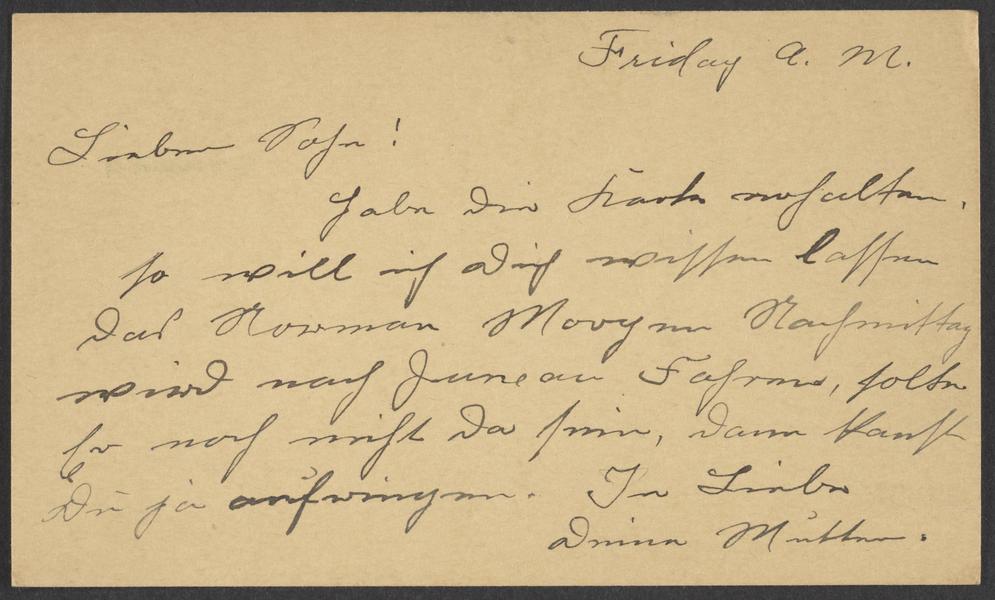 Friday A. M.
Lieber Sohn!
Habe die Karte erhalten,
so will ich dich wissen lassen
das Norman Morgen Nachmittag
wird nach Juneau Fahren, solte
Er noch nicht da sein, dann kanst
Du ja aufringen. In Liebe
deine Mutter.